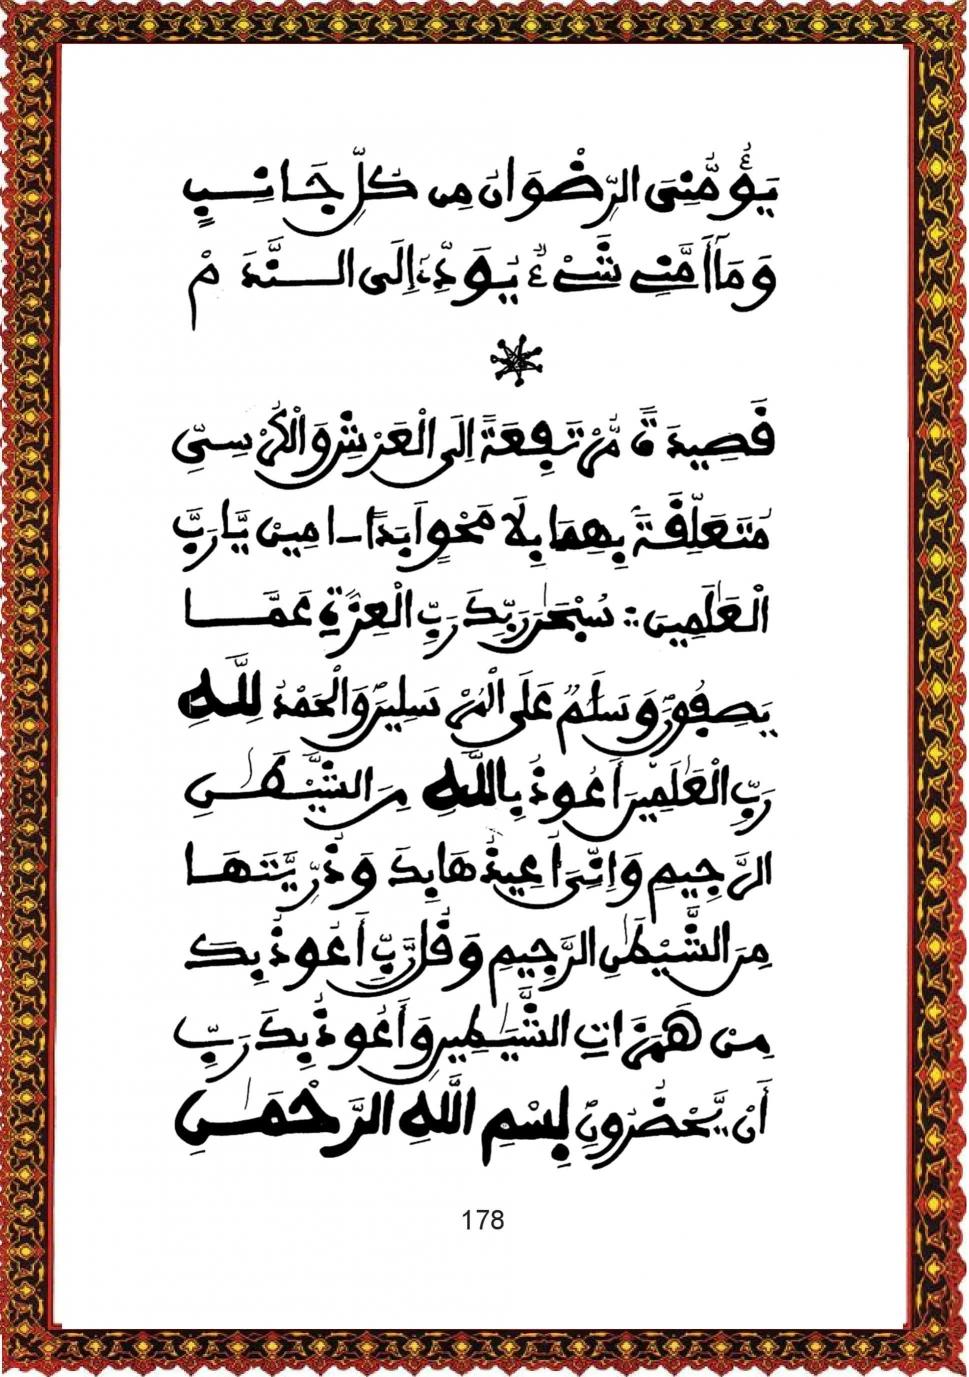 يُؤَمِّنُنِى الرِّضْوَانَ مِن كُلِّ جَانِبٍ
وَمَا أَمَّنِى شَىْءٌ يُؤَدِّ إِلَى النَّدَمْ
قَصِيدَةٌ مُّرْتَفِعَةً إِلَى الْعَرْشِ وَالْكُرْسِىِّ
مُتَعَلِّقَةً بِهِمَا بِلَا مَحْوٍ اَبَدًا ـ اٰمِين يَا رَبَّ
الْعَٰلَمِينَ :: سُبْحَٰنَ رَبِّكَ رَبِّ الْعِزَّةِ عَمَّا
يَصِفُونَ وَسَلَٰمٌ عَلَى الْمُرْسَلِينَ وَالْحَمْدُ لِلَّهِ
رَبِّ الْعَٰلَمِينَ أَعُوذُ بِاللَّهِ مِنَ الشَّيْطَٰنِ
الرَّجِيمِ وَإِنِّىَ أُعِيذُهَا بِكَ وَذُرِّيَّتَهَا
مِنَ الشَّيْطَٰنِ الرَّجِيمِ وَقُل رَّبِّ أَعُوذُ بِكَ
مِنْ هَمَزَاتِ الشَّيَٰطِينِ وَأَعُوذُ بِكَ رَبِّ
أَنْ يَّحْضُرُونِ بِسْمِ اللَّهِ الرَّحْمَٰنِ
178